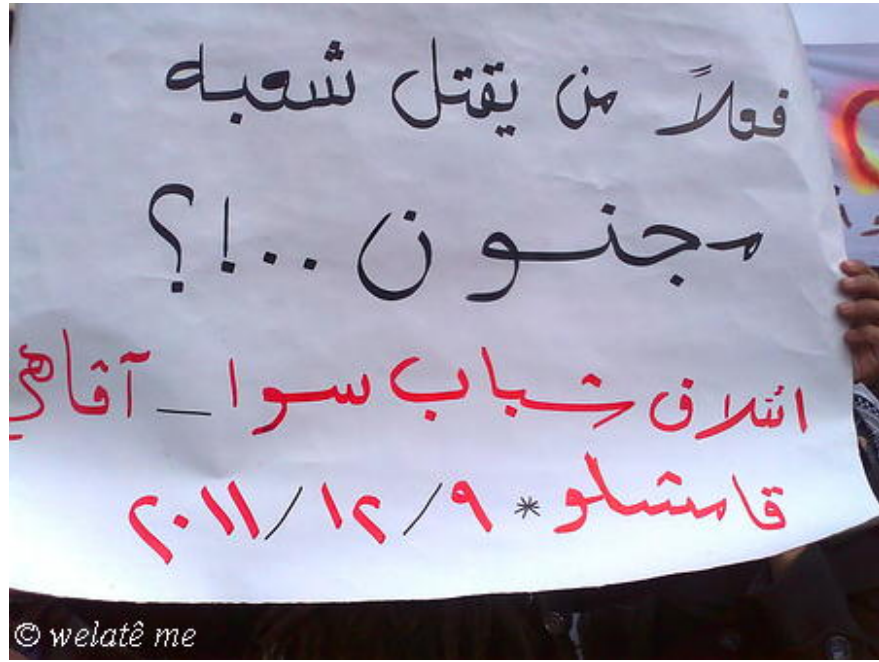 فعلاً من يقتل شعبه
مجنون ..!؟
ائتلاف شباب سوا _ آفاهي
قامشلو * ٩ / ١٢ / ٢٠١١
© welatê me